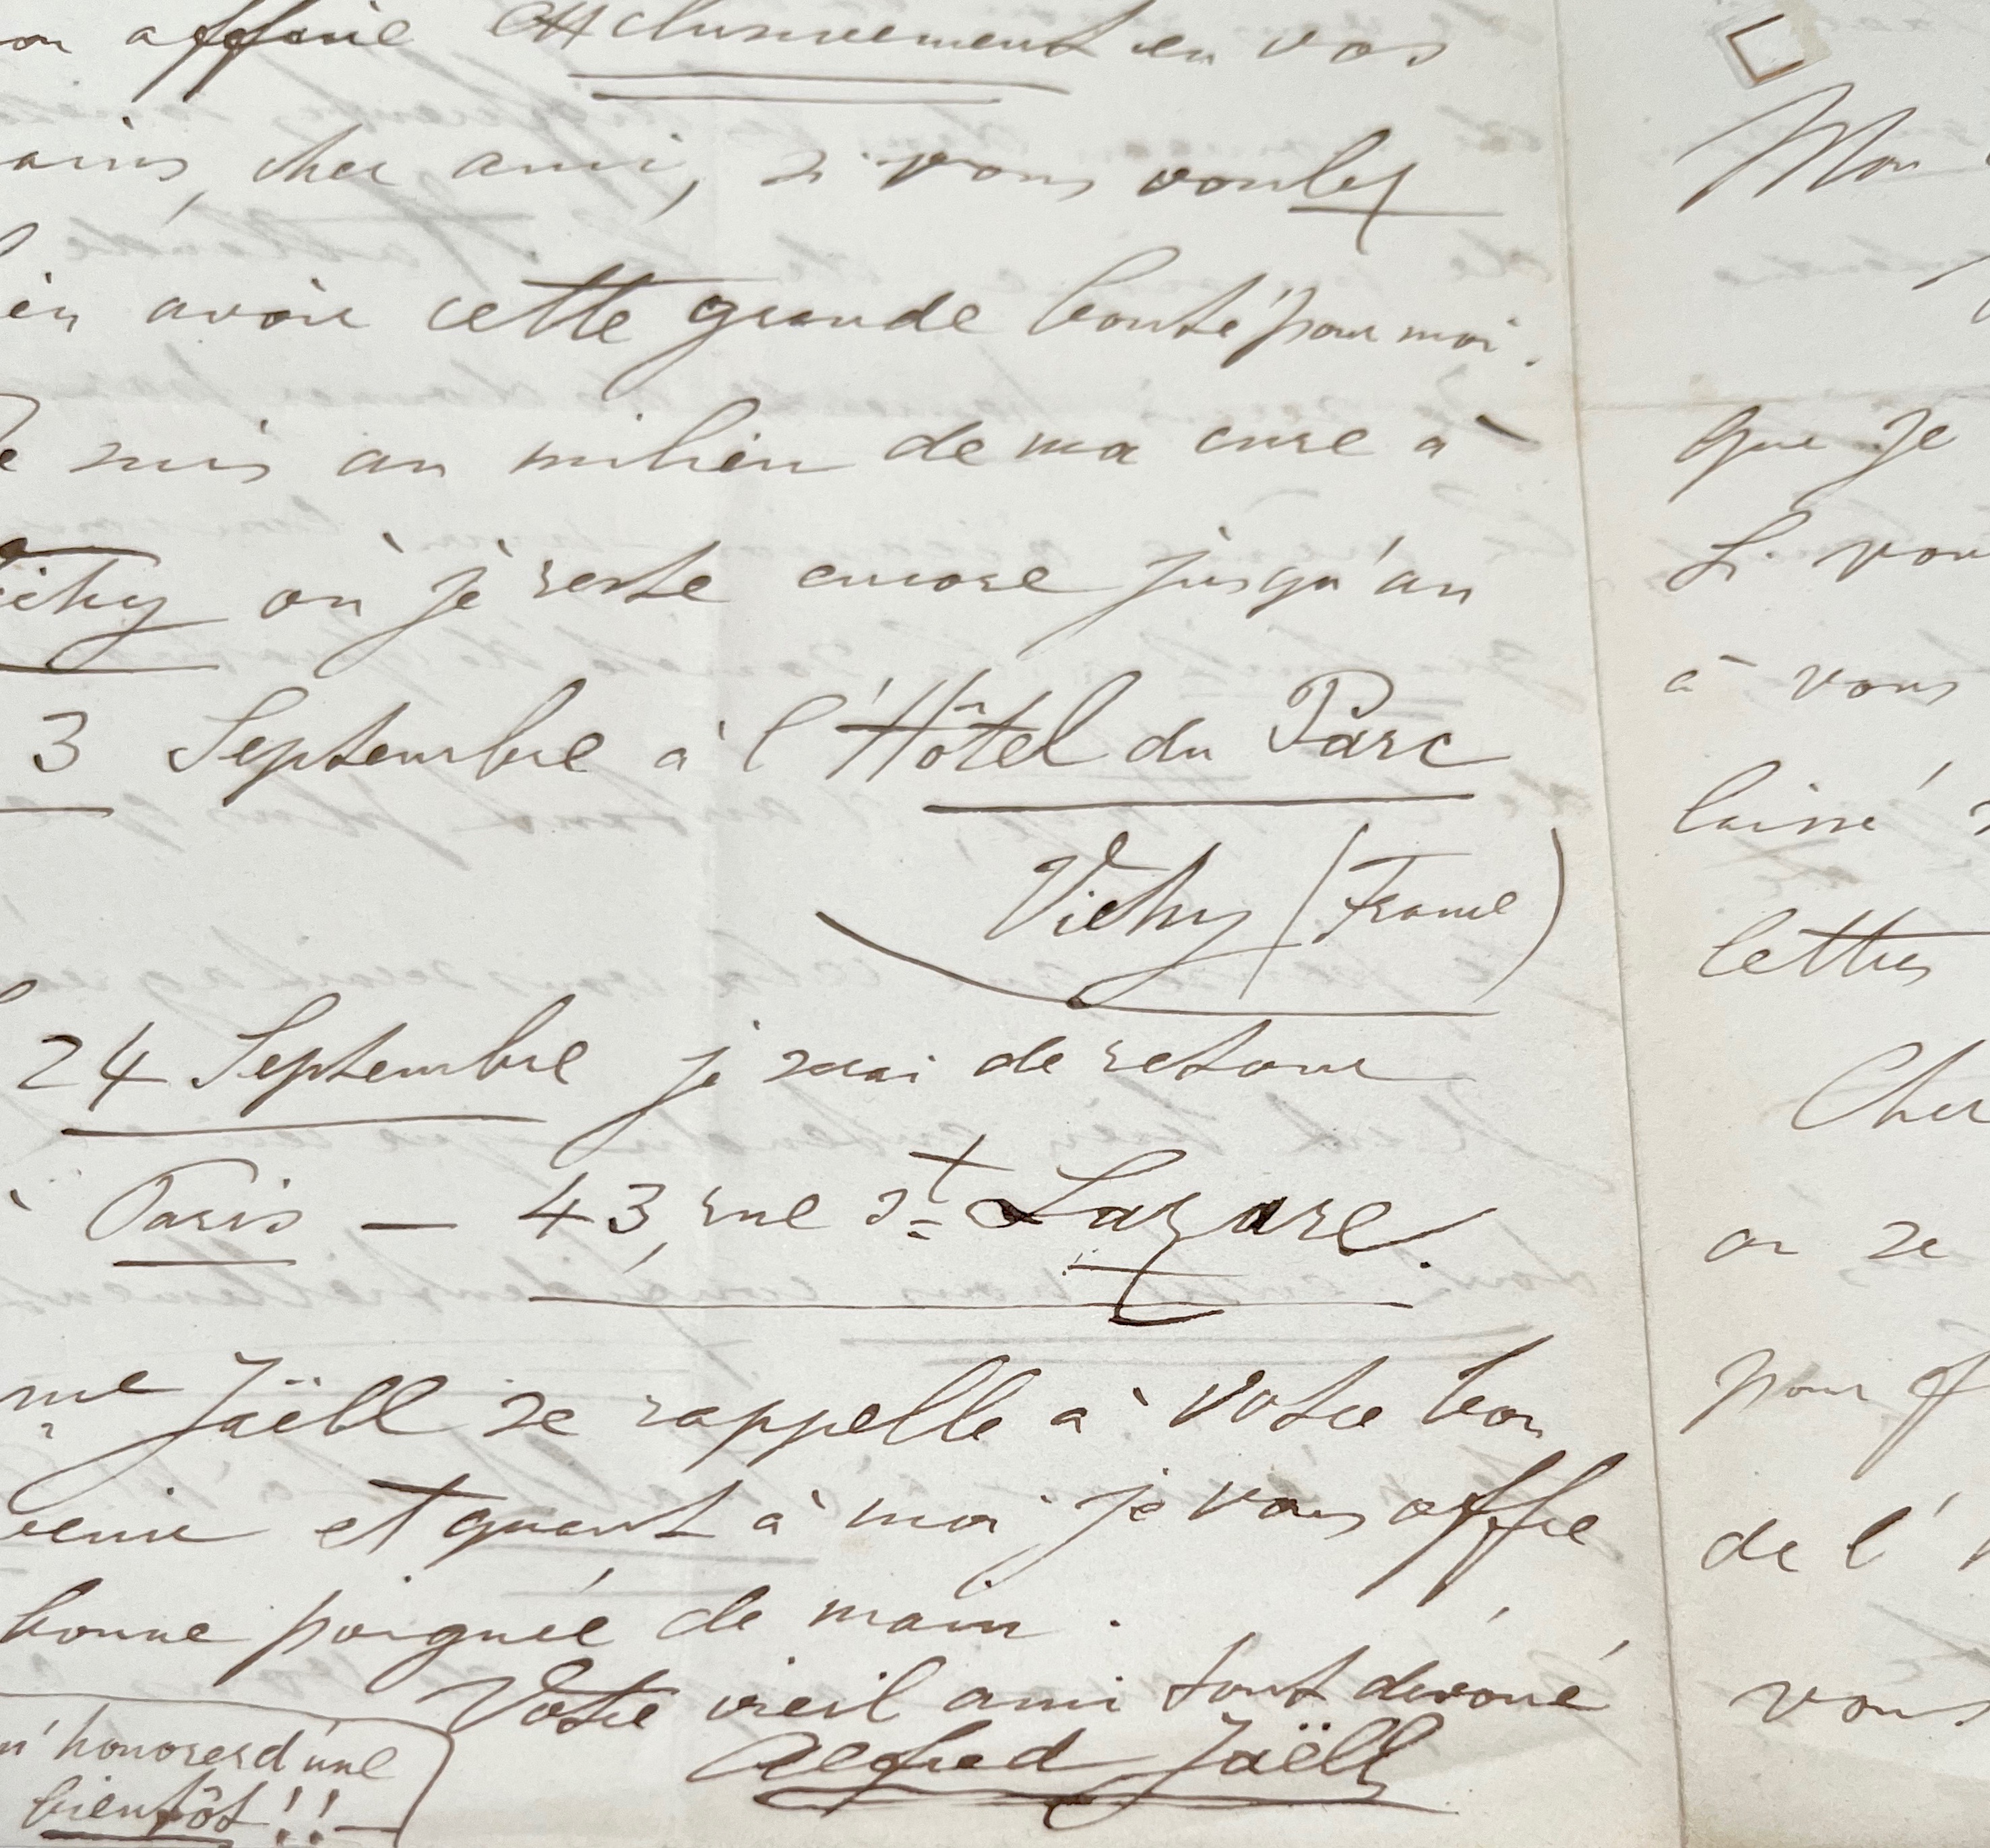 on affaire exclusivement en vos
ains, cher ami, si vous voulez
ien avoir cette grande bonté pour moi.
Je suis au milieu de ma cure à
Vichy où je reste encore jusqu'au
3 Septembre à l'Hôtel du Parc
Vichy (France)
24 Septembre je serai de retour
à Paris — 43, rue St Lazare.
me Jaëll se rappelle à votre bon
venir et quant à moi je vous offre
bonne poignée de main.
Votre vieil ami tout dévoué
Alfred Jaëll
m'honorer d'une
bientôt!!—
Mon
que je
Si vou
à vous
laissé
lettres
Cher
on se
pour
de l'
vous